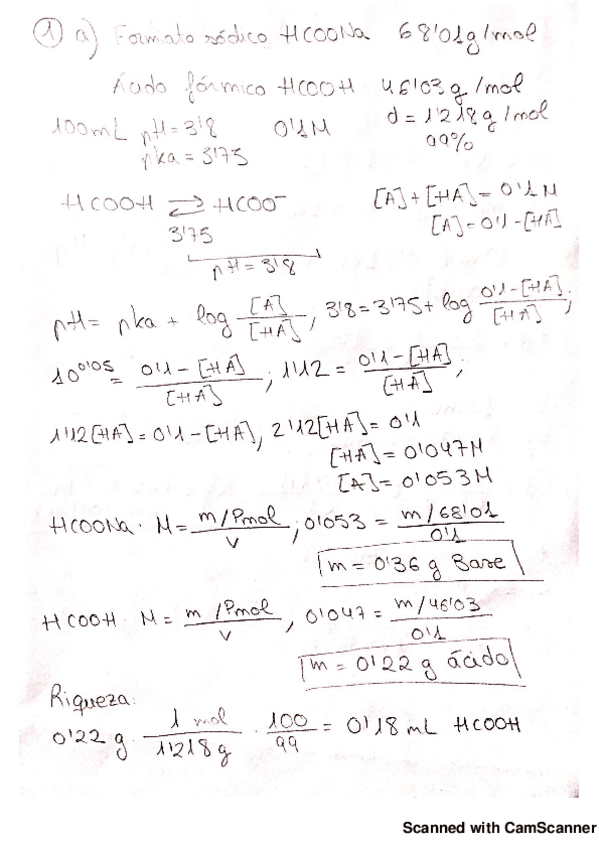 ① a) Formato sódico HCOONa 68'01g/mol
Ácido fórmico HCOOH 46'03 g/mol
100mL pH=3'8 0'1M d=1'218g/mol
pka=3'75 99%
HCOOH ⇄ HCOO⁻ [A]+[HA]=0'1M
3'75 [A]=0'1-[HA]
pH=3'8
pH= pka + log [A]/[HA], 3'8=3'75+log 0'1-[HA]/[HA];
10^0'05 = 0'1-[HA]/[HA]; 1'12 = 0'1-[HA]/[HA];
1'12[HA]=0'1-[HA], 2'12[HA]=0'1
[HA]=0'047M
[A]=0'053M
HCOONa · M= m/Pmol/V; 0'053 = m/68'01/0'1
m=0'36 g Base
HCOOH · M= m/Pmol/V, 0'047= m/46'03/0'1
m=0'22 g ácido
Riqueza:
0'22 g · 1 mol/1'218g · 100/99 = 0'18 mL HCOOH
Scanned with CamScanner